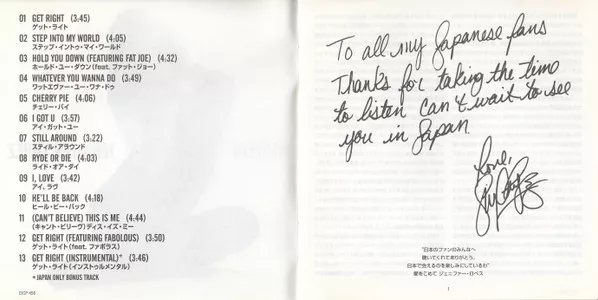 01 GET RIGHT (3:45)
ゲット・ライト
02 STEP INTO MY WORLD (4:05)
ステップ・イントゥ・マイ・ワールド
03 HOLD YOU DOWN (FEATURING FAT JOE) (4:32)
ホールド・ユー・ダウン (feat. ファット・ジョー)
04 WHATEVER YOU WANNA DO (3:49)
ワットエヴァー・ユー・ワナ・ドゥ
05 CHERRY PIE (4:06)
チェリー・パイ
06 I GOT U (3:57)
アイ・ガット・ユー
07 STILL AROUND (3:22)
スティル・アラウンド
08 RYDE OR DIE (4:03)
ライド・オア・ダイ
09 I, LOVE (3:42)
アイ, ラヴ
10 HE'LL BE BACK (4:18)
ヒール・ビー・バック
11 (CAN'T BELIEVE) THIS IS ME (4:44)
(キャント・ビリーヴ) ディス・イズ・ミー
12 GET RIGHT (FEATURING FABOLOUS) (3:50)
ゲット・ライト (feat. ファボラス)
13 GET RIGHT (INSTRUMENTAL)* (3:46)
ゲット・ライト (インストゥルメンタル)
* JAPAN ONLY BONUS TRACK
To all my Japanese fans
Thanks for taking the time
to listen Can't wait to see
you in Japan
Love,
"日本のファンのみんなへ
聴いてくれてありがとう。
日本で会えるのを楽しみにしているわ"
愛をこめて ジェニファー・ロペス
1